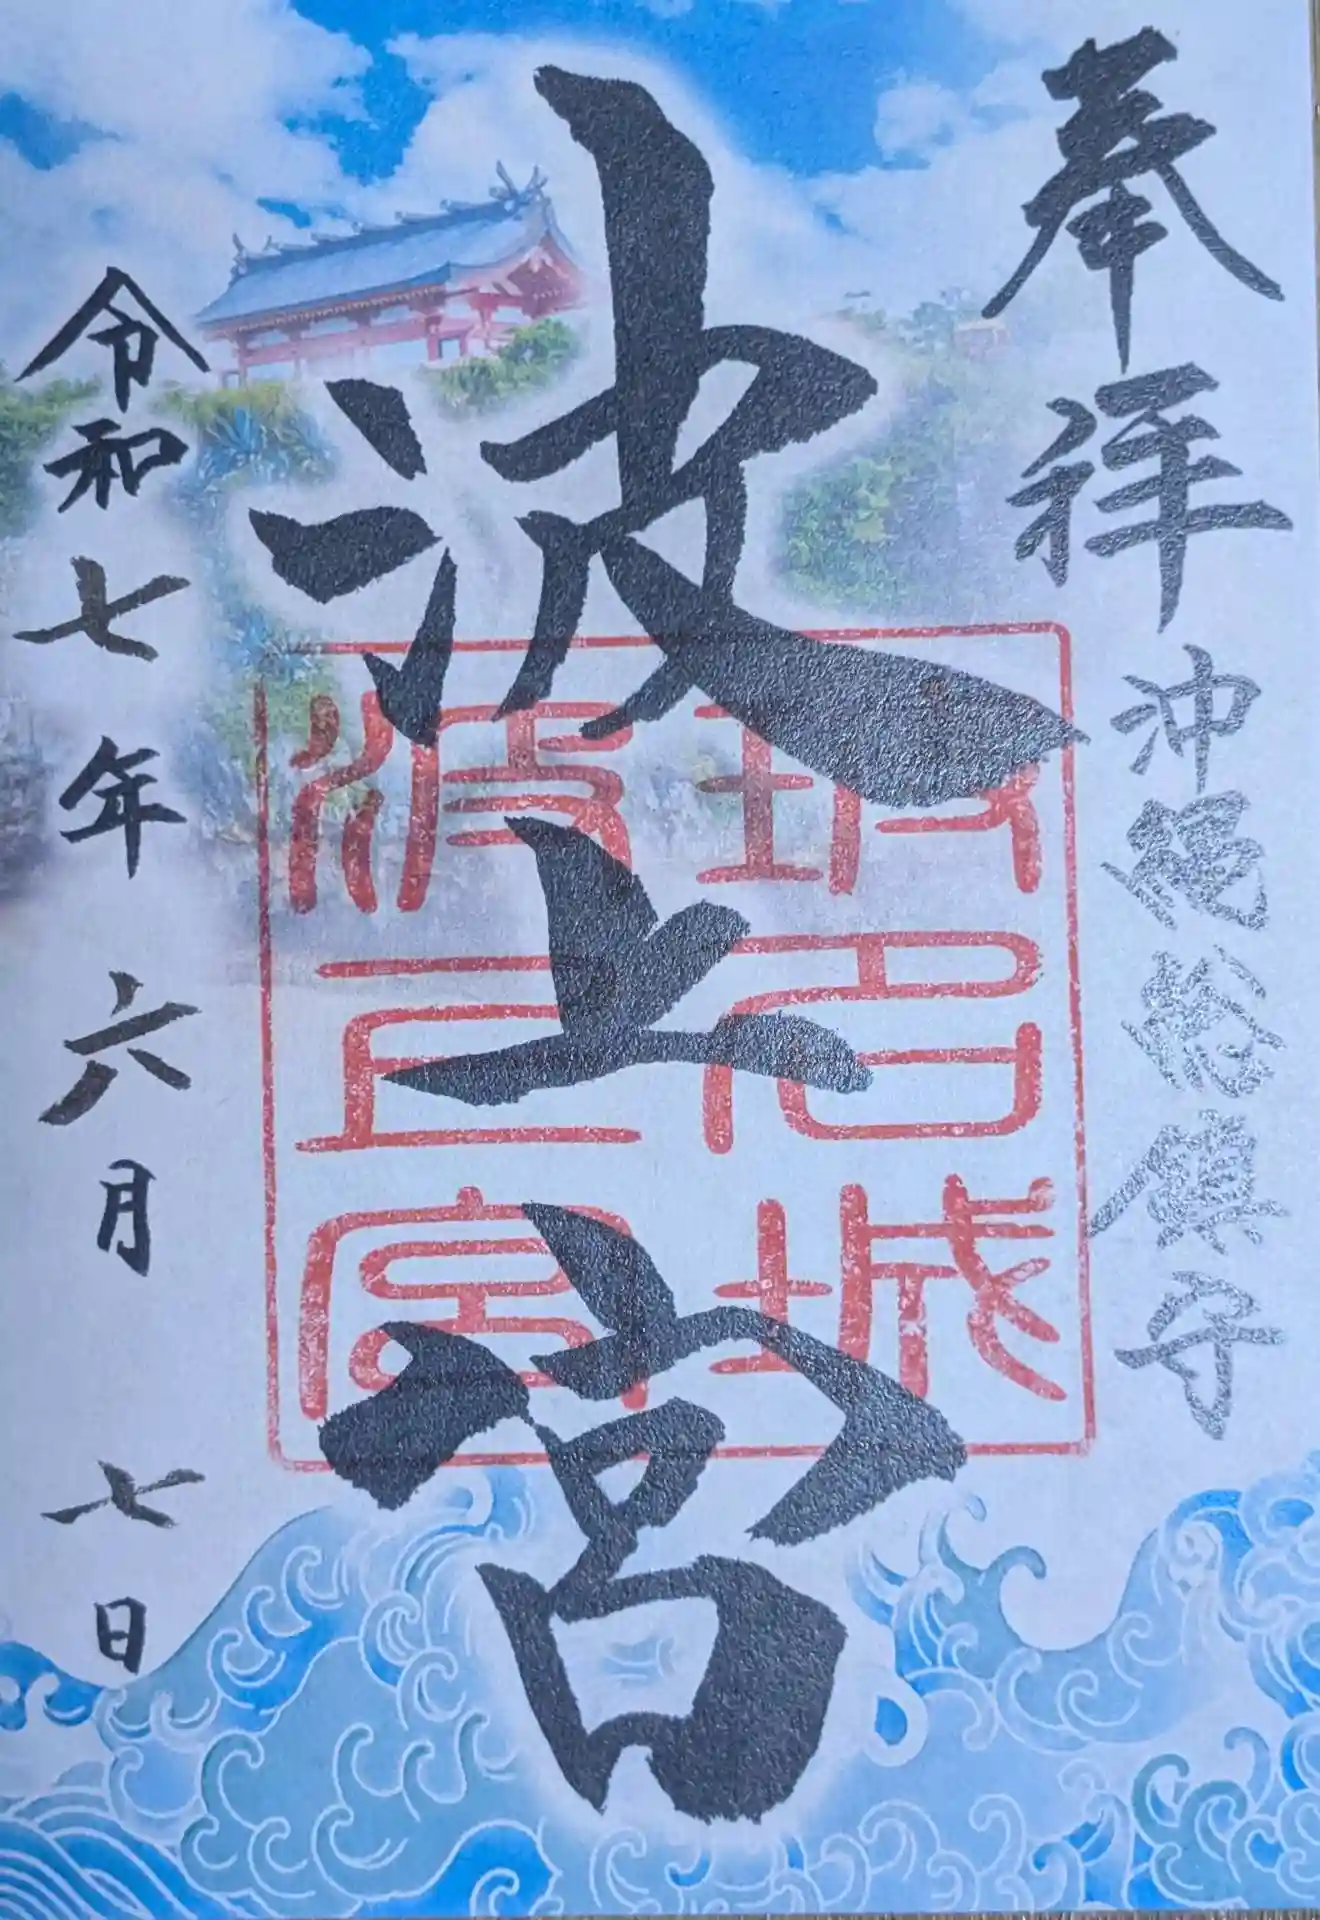 奉拝
沖縄総鎮守
波上宮
波上宮
令和七年六月七日